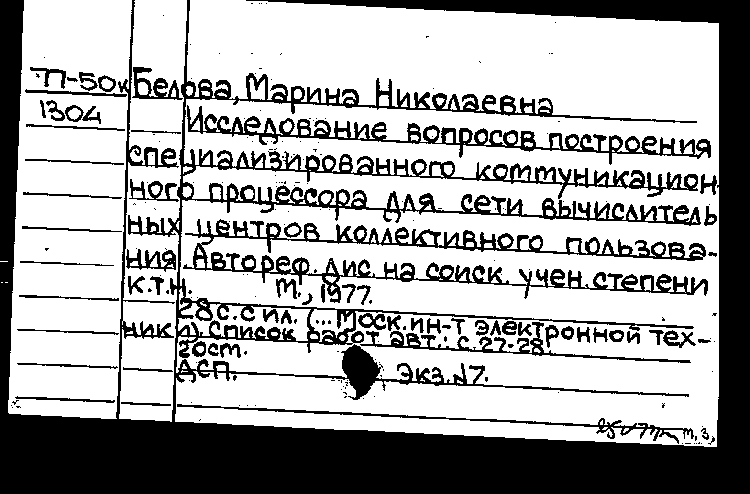 П-50к Белова, Марина Николаевна
1304 Исследование вопросов построения
специализированного коммуникацион
ного процессора для сети вычислитель
ных центров коллективного пользова-
ния. Автореф. дис. на соиск. учен. степени
к.т.н. М., 1977.
28с. с ил. (... Моск. ин-т электронной тех-
ники). Список работ авт.: с. 27-28.
ДСП. Экз. №7.